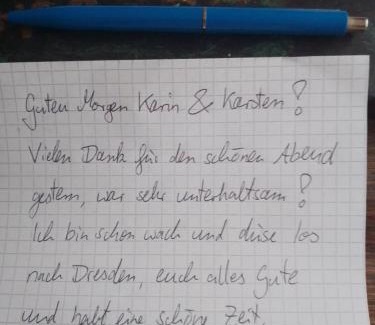 Guten Morgen Karin & Karsten!
Vielen Dank für den schönen Abend
gestern, war sehr unterhaltsam!
Ich bin schon wach und düse los
nach Dresden, euch alles Gute
und habt eine schöne Zeit